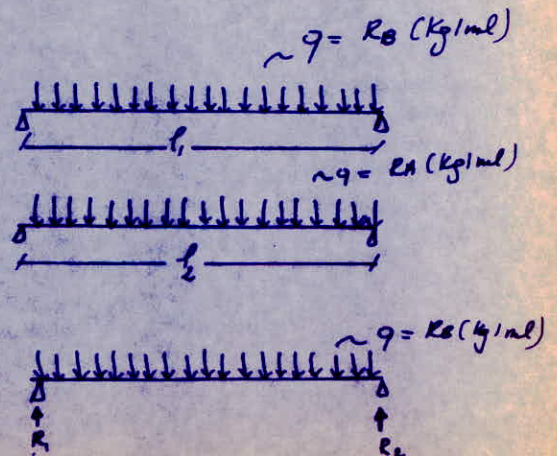 ~ q = RB (Kg/ml)
l1
~ q = RA (Kg/ml)
l2
~ q = RB (Kg/ml)
R1 R2